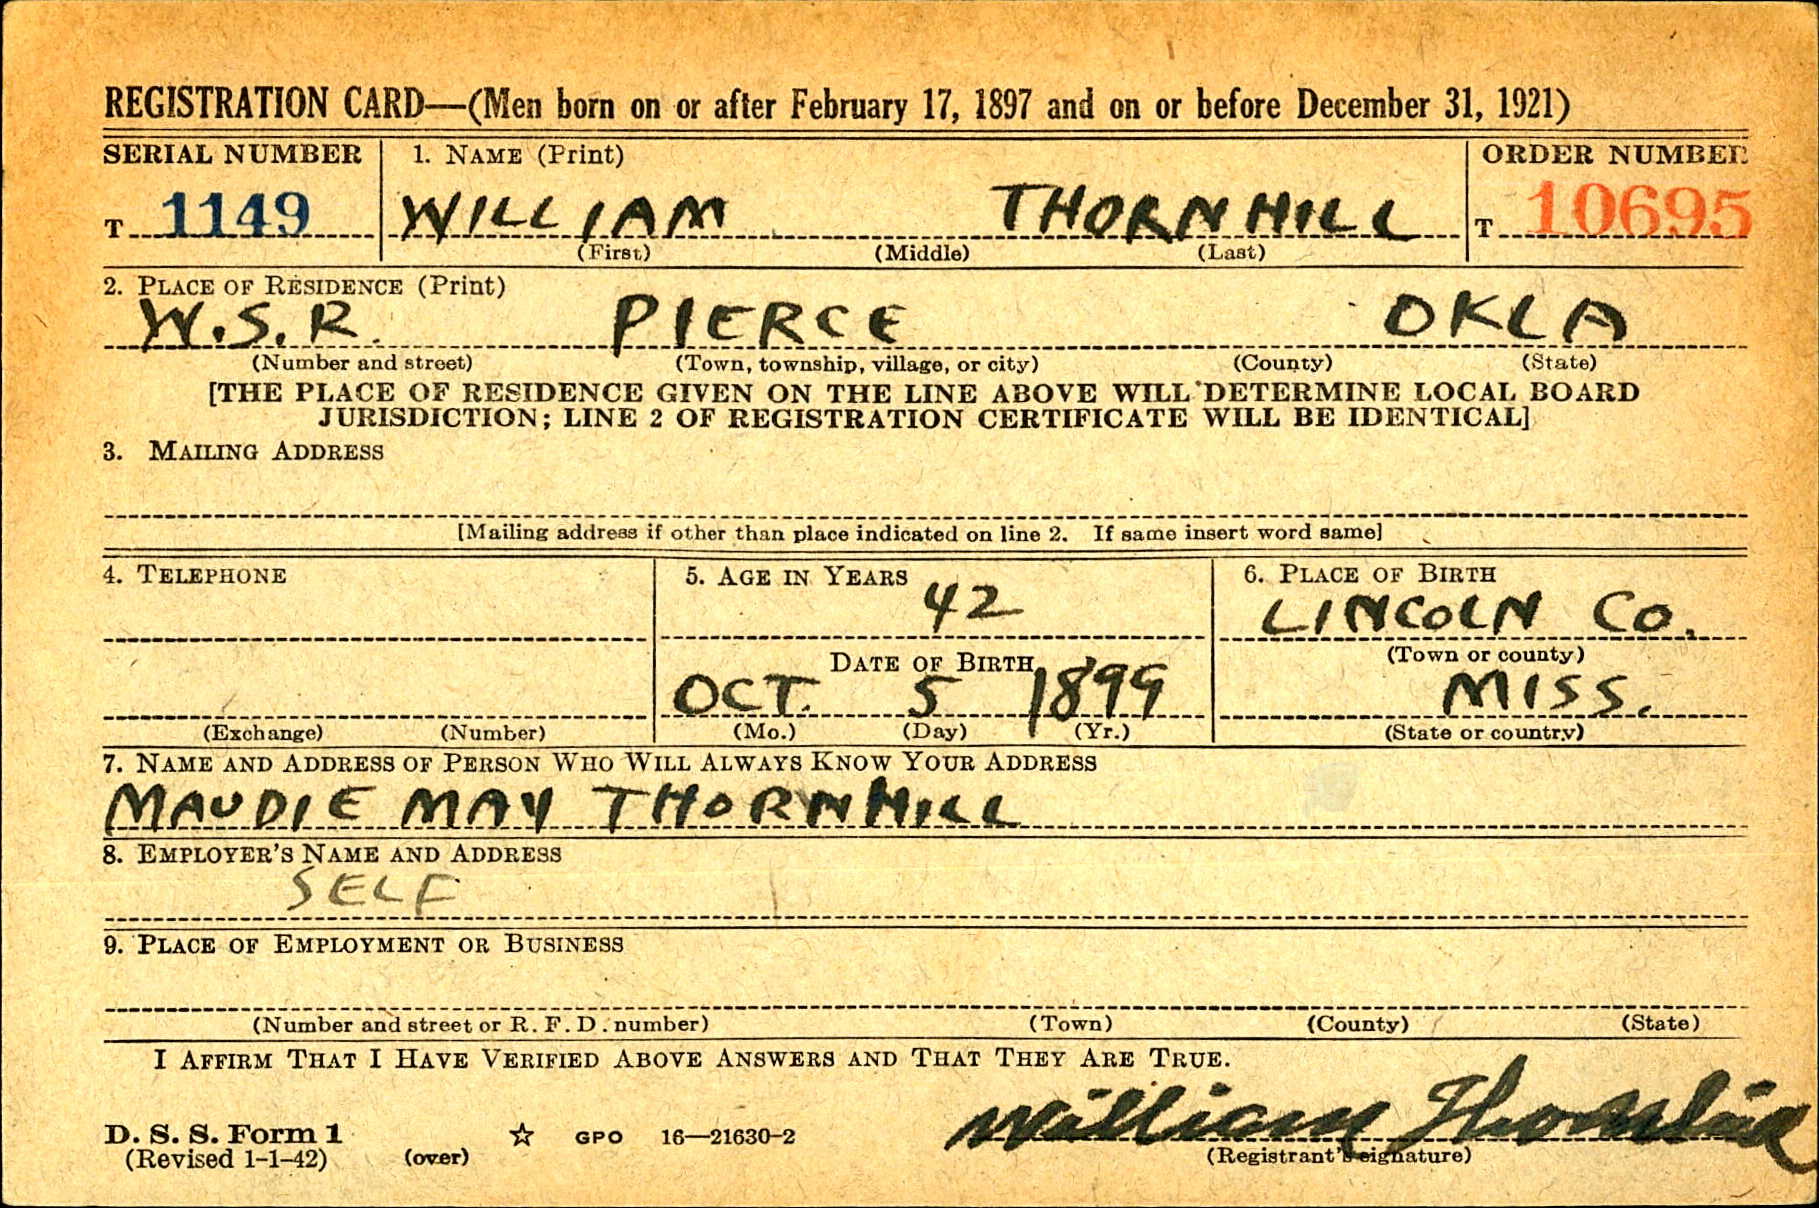 REGISTRATION CARD—(Men born on or after February 17, 1897 and on or before December 31, 1921)
SERIAL NUMBER 1. NAME (Print) ORDER NUMBER
T 1149 WILLIAM THORNHILL T 10695
(First) (Middle) (Last)
2. PLACE OF RESIDENCE (Print)
W.S.R. PIERCE OKLA
(Number and street) (Town, township, village, or city) (County) (State)
[THE PLACE OF RESIDENCE GIVEN ON THE LINE ABOVE WILL DETERMINE LOCAL BOARD
JURISDICTION; LINE 2 OF REGISTRATION CERTIFICATE WILL BE IDENTICAL]
3. MAILING ADDRESS
[Mailing address if other than place indicated on line 2. If same insert word same]
4. TELEPHONE 5. AGE IN YEARS 6. PLACE OF BIRTH
42 LINCOLN CO.
DATE OF BIRTH (Town or county)
OCT. 5 1899 MISS.
(Exchange) (Number) (Mo.) (Day) (Yr.) (State or country)
7. NAME AND ADDRESS OF PERSON WHO WILL ALWAYS KNOW YOUR ADDRESS
MAUDIE MAY THORNHILL
8. EMPLOYER'S NAME AND ADDRESS
SELF
9. PLACE OF EMPLOYMENT OR BUSINESS
(Number and street or R. F. D. number) (Town) (County) (State)
I AFFIRM THAT I HAVE VERIFIED ABOVE ANSWERS AND THAT THEY ARE TRUE.
William Thornhill
D. S. S. Form 1 ☆ GPO 16—21630-2
(Revised 1-1-42) (over) (Registrant's signature)